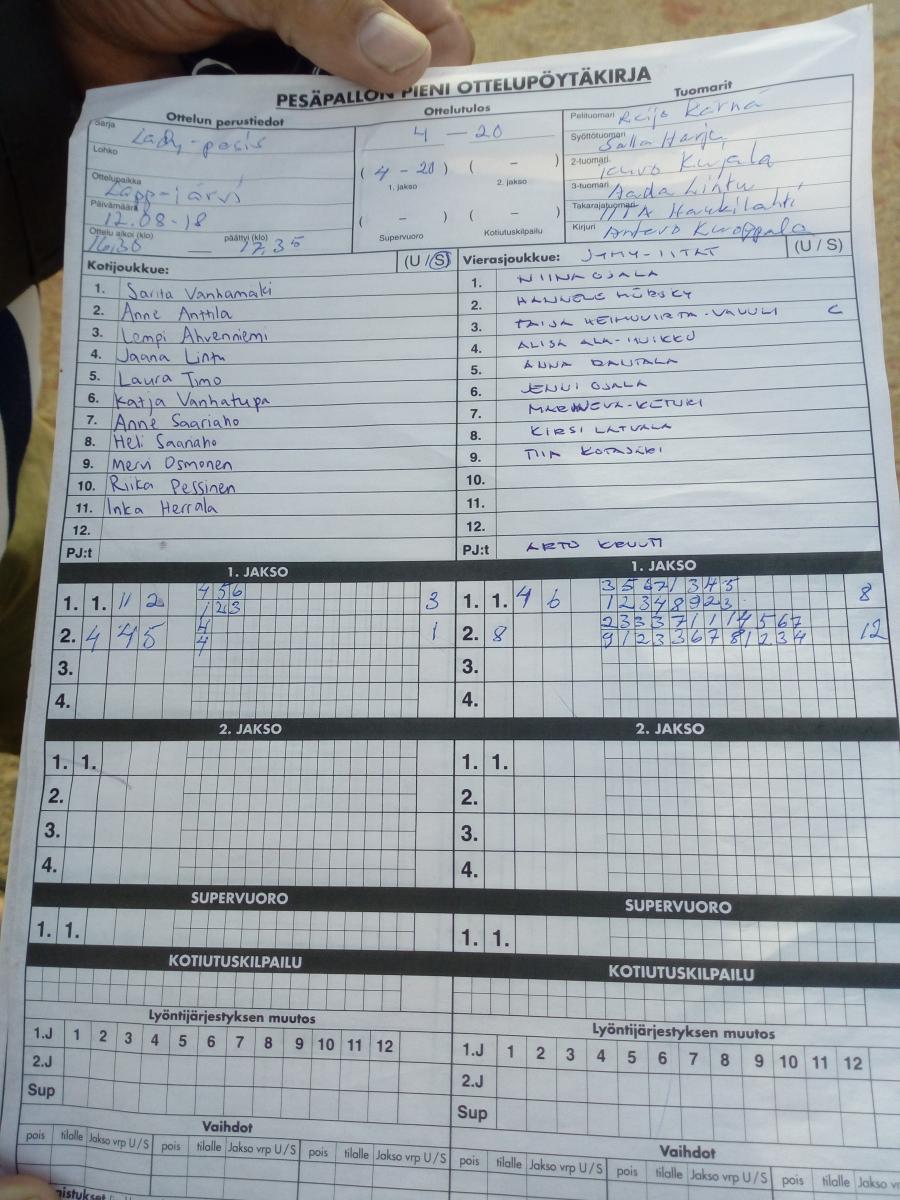 PESÄPALLON PIENI OTTELUPÖYTÄKIRJA
Ottelun perustiedot
Ottelutulos
Tuomarit
Sarja Lady-pesis
4 — 20
Pelituomari Reijo Kärnä
Lohko
Syöttötuomari Salla Harju
( 4 - 20 ) ( – )
1. jakso 2. jakso
2-tuomari Kujala
Ottelupaikka Lappajärvi
3-tuomari Aada Lintu
Päivämäärä 12.08-18
( – ) ( – )
Supervuoro Kotiutuskilpailu
Takarajatuomari IITA Haukilahti
Ottelu alkoi (klo) 16.30 — päättyi (klo) 17.35
Kirjuri Antero Kuoppala
Kotijoukkue: (U / S)
Vierasjoukkue: JYMY-IITAT (U / S)
1. Sarita Vanhamäki
2. Anne Anttila
3. Lempi Ahvenniemi
4. Jaana Lintu
5. Laura Timo
6. Katja Vanhatupa
7. Anne Saariaho
8. Heli Saariaho
9. Mervi Osmonen
10. Riika Pessinen
11. Inka Herrala
12.
PJ:t
1. NIINA OJALA
2. HANNELE
3. TAIJA C
4. ALISA ALA-
5. ANNA RAUTALA
6. JENNI OJALA
7.
8. KIRSI LATVALA
9. TIIA KOTAJÄRVI
10.
11.
12.
PJ:t ARTO
1. JAKSO
1. 1. 11 2 4 5 6 3
1 2 3
2. 4 4 5 4 1
4
3.
4.
1. JAKSO
1. 1. 4 6 3 5 6 7 1 3 4 5 8
1 2 3 4 8 9 2 3
2. 8 2 3 3 3 7 1 1 1 4 5 6 7 12
9 1 2 3 3 6 7 8 1 2 3 4
3.
4.
2. JAKSO
1. 1.
2.
3.
4.
2. JAKSO
1. 1.
2.
3.
4.
SUPERVUORO
1. 1.
SUPERVUORO
1. 1.
KOTIUTUSKILPAILU
KOTIUTUSKILPAILU
Lyöntijärjestyksen muutos
1.J 1 2 3 4 5 6 7 8 9 10 11 12
2.J
Sup
Lyöntijärjestyksen muutos
1.J 1 2 3 4 5 6 7 8 9 10 11 12
2.J
Sup
Vaihdot
pois tilalle Jakso vrp U / S pois tilalle Jakso vrp U / S pois tilalle Jakso vrp U / S
Vaihdot
pois tilalle Jakso vrp U / S pois tilalle Jakso vrp U / S pois tilalle Jakso vrp